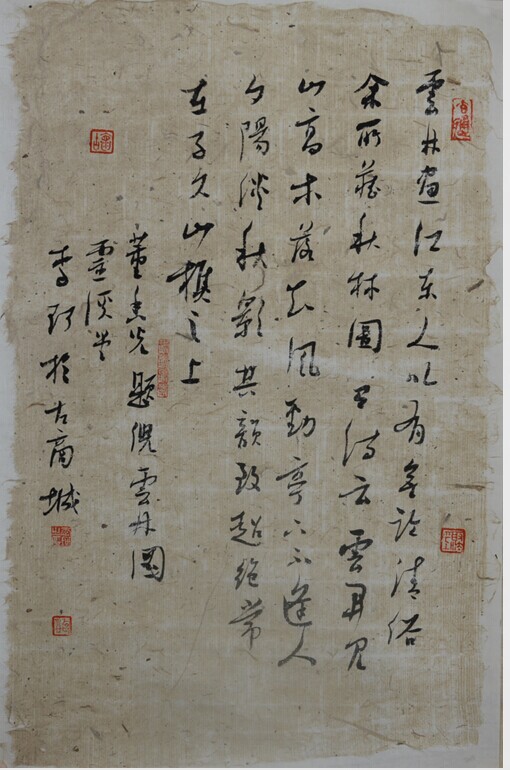 雲林畫江东人以有無論清俗
余所藏秋林圖有诗云雲開見
山高木落知風勁亭下不逢人
夕陽澹秋影其韻致超絕常
在子久山樵之上
董香光題倪雲林圖
李於古商城